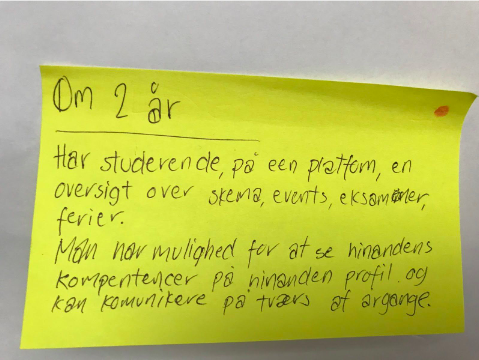 Om 2 år
Har studerende, på een platfom, en
oversigt over skema, events, eksamener,
ferier.
Man har mulighed for at se hinandens
kompentencer på hinanden profil og
kan komunikere på tværs af årgange.